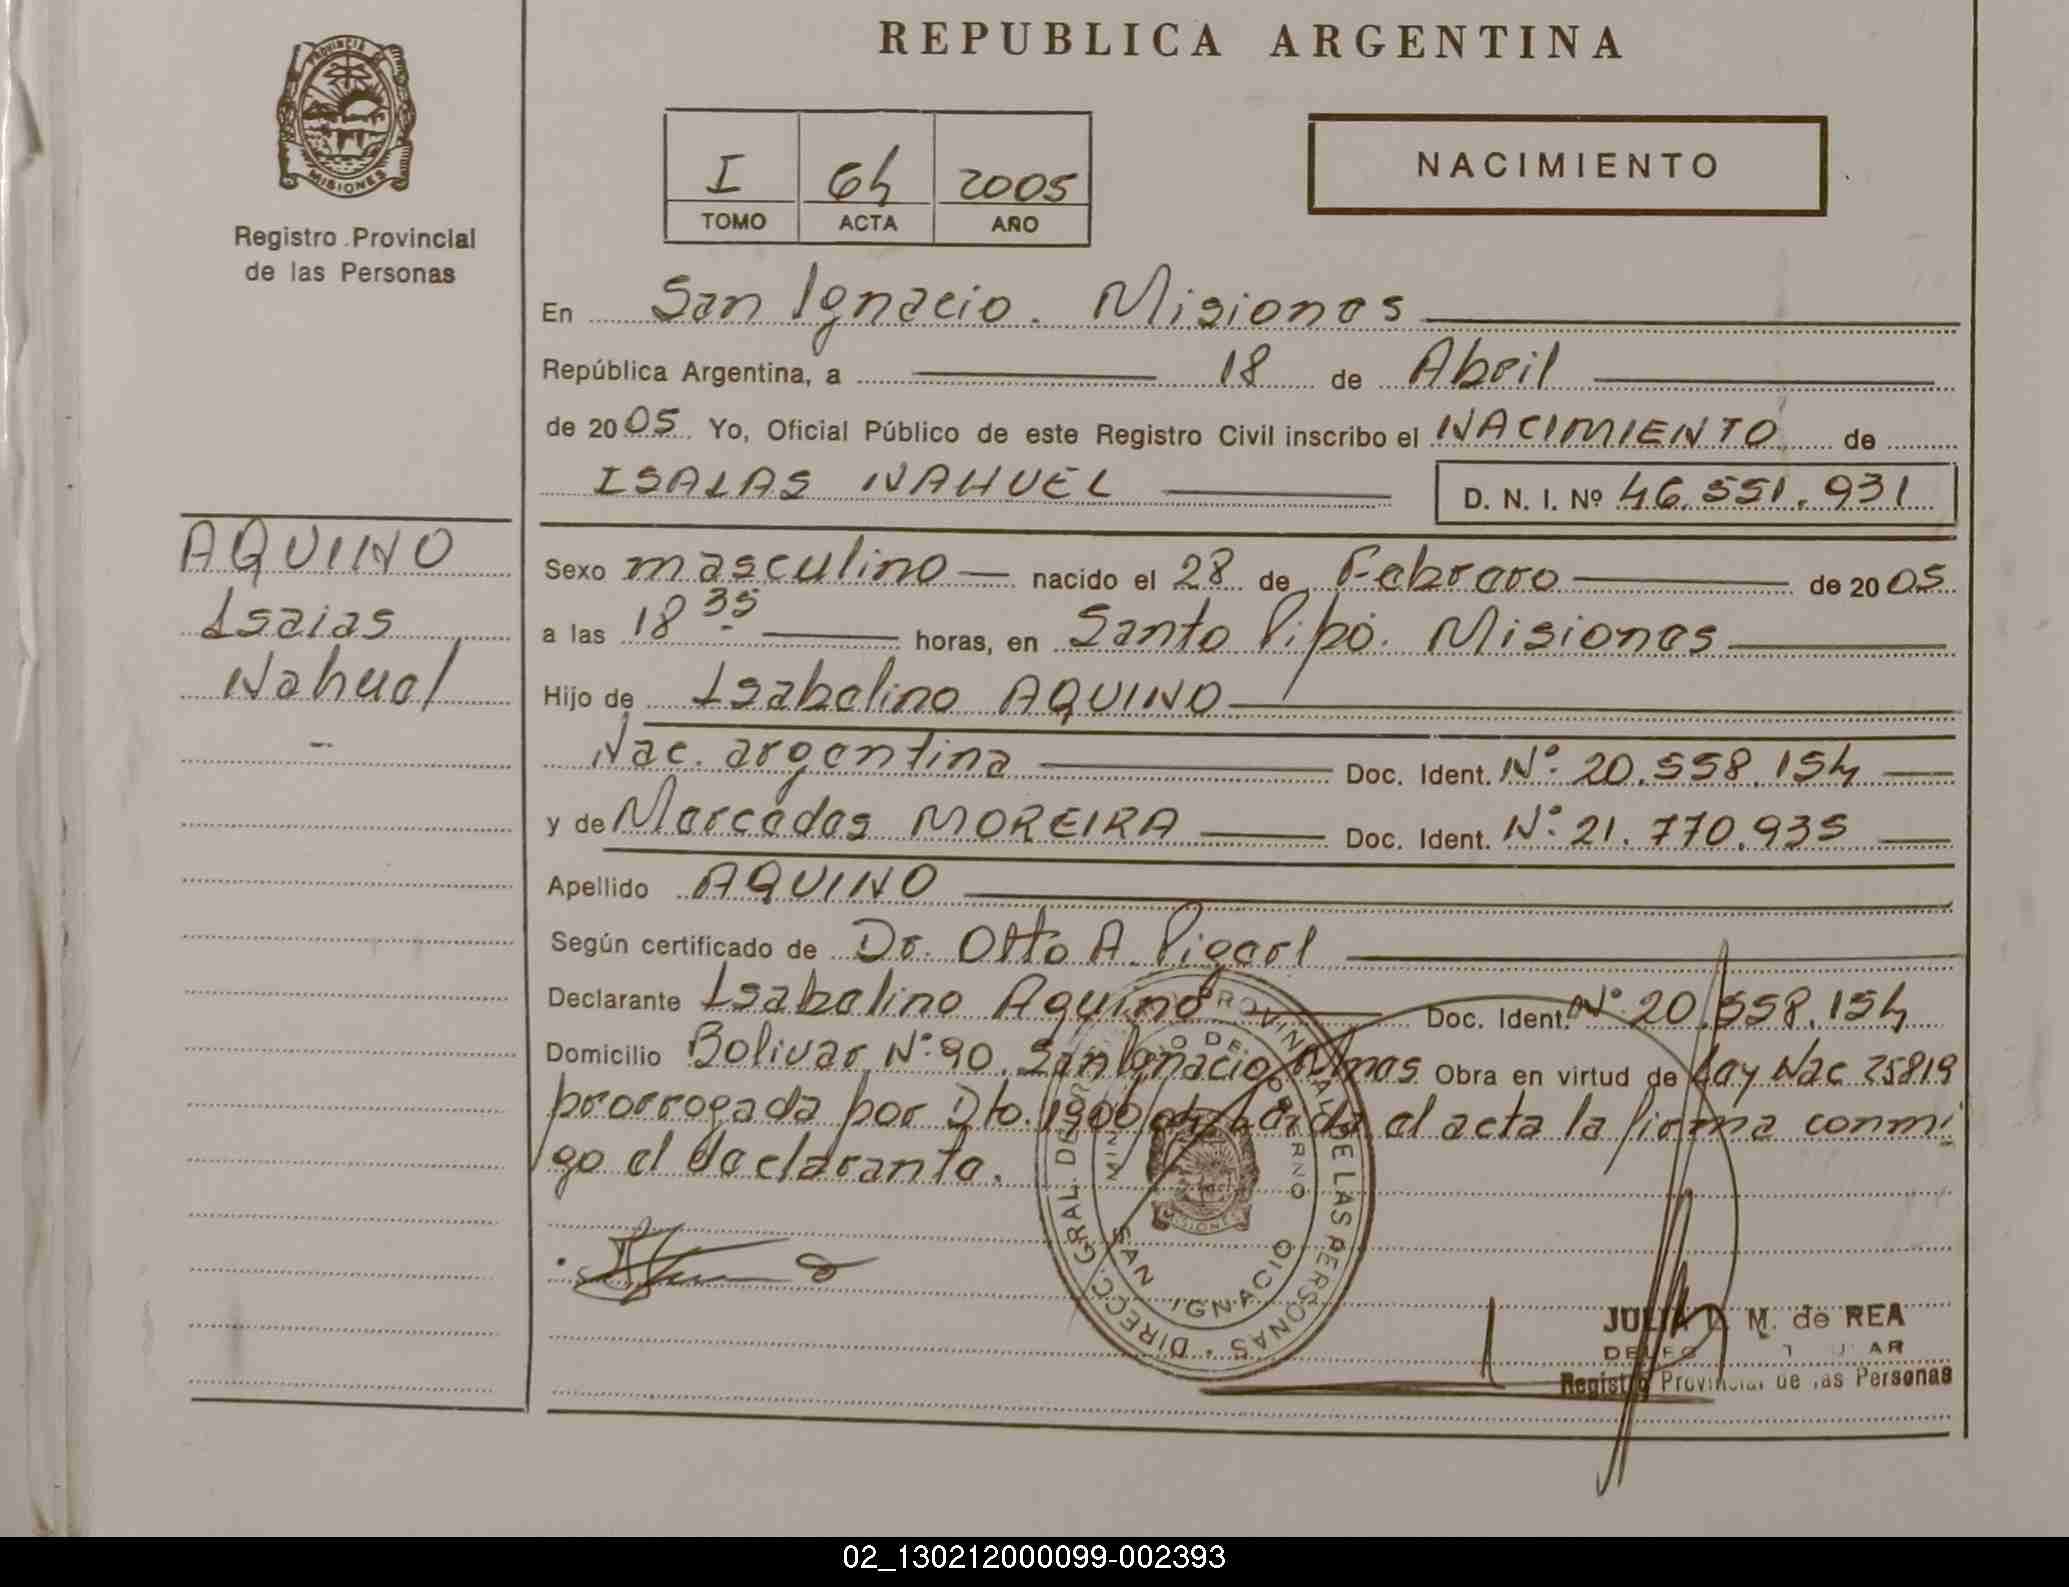 REPUBLICA ARGENTINA
PROVINCIA DE
MISIONES
Registro Provincial
de las Personas
I 64 2005
TOMO ACTA AÑO
NACIMIENTO
En San Ignacio. Misiones
República Argentina, a 18 de Abril
de 2005 Yo, Oficial Público de este Registro Civil inscribo el NACIMIENTO de
ISAIAS NAHUEL D. N. I. Nº 46.551.931
AQUINO
Isaias
Nahuel
Sexo masculino nacido el 28 de Febrero de 2005
a las 18 35 horas, en Santo Pipó. Misiones
Hijo de Isabelino AQUINO
Nac. argentina Doc. Ident. Nº 20.558.154
y de Mercedes MOREIRA Doc. Ident. Nº 21.770.935
Apellido AQUINO
Según certificado de Dr. Otto A.
Declarante Isabelino Aquino Doc. Ident. Nº 20.558.154
Domicilio Bolivar Nº 90. San Ignacio Mnes Obra en virtud de Ley Nac 25819
prorrogada por Dto. 1900/ Leida el acta la firma conmi
go el declarante.
DIRECC. GRAL. DEL REG. PROVINCIAL DE LAS PERSONAS
MINISTERIO DE GOBIERNO
MISIONES
SAN IGNACIO
JULIA M. de REA
Registro Provincial de las Personas
02_130212000099-002393